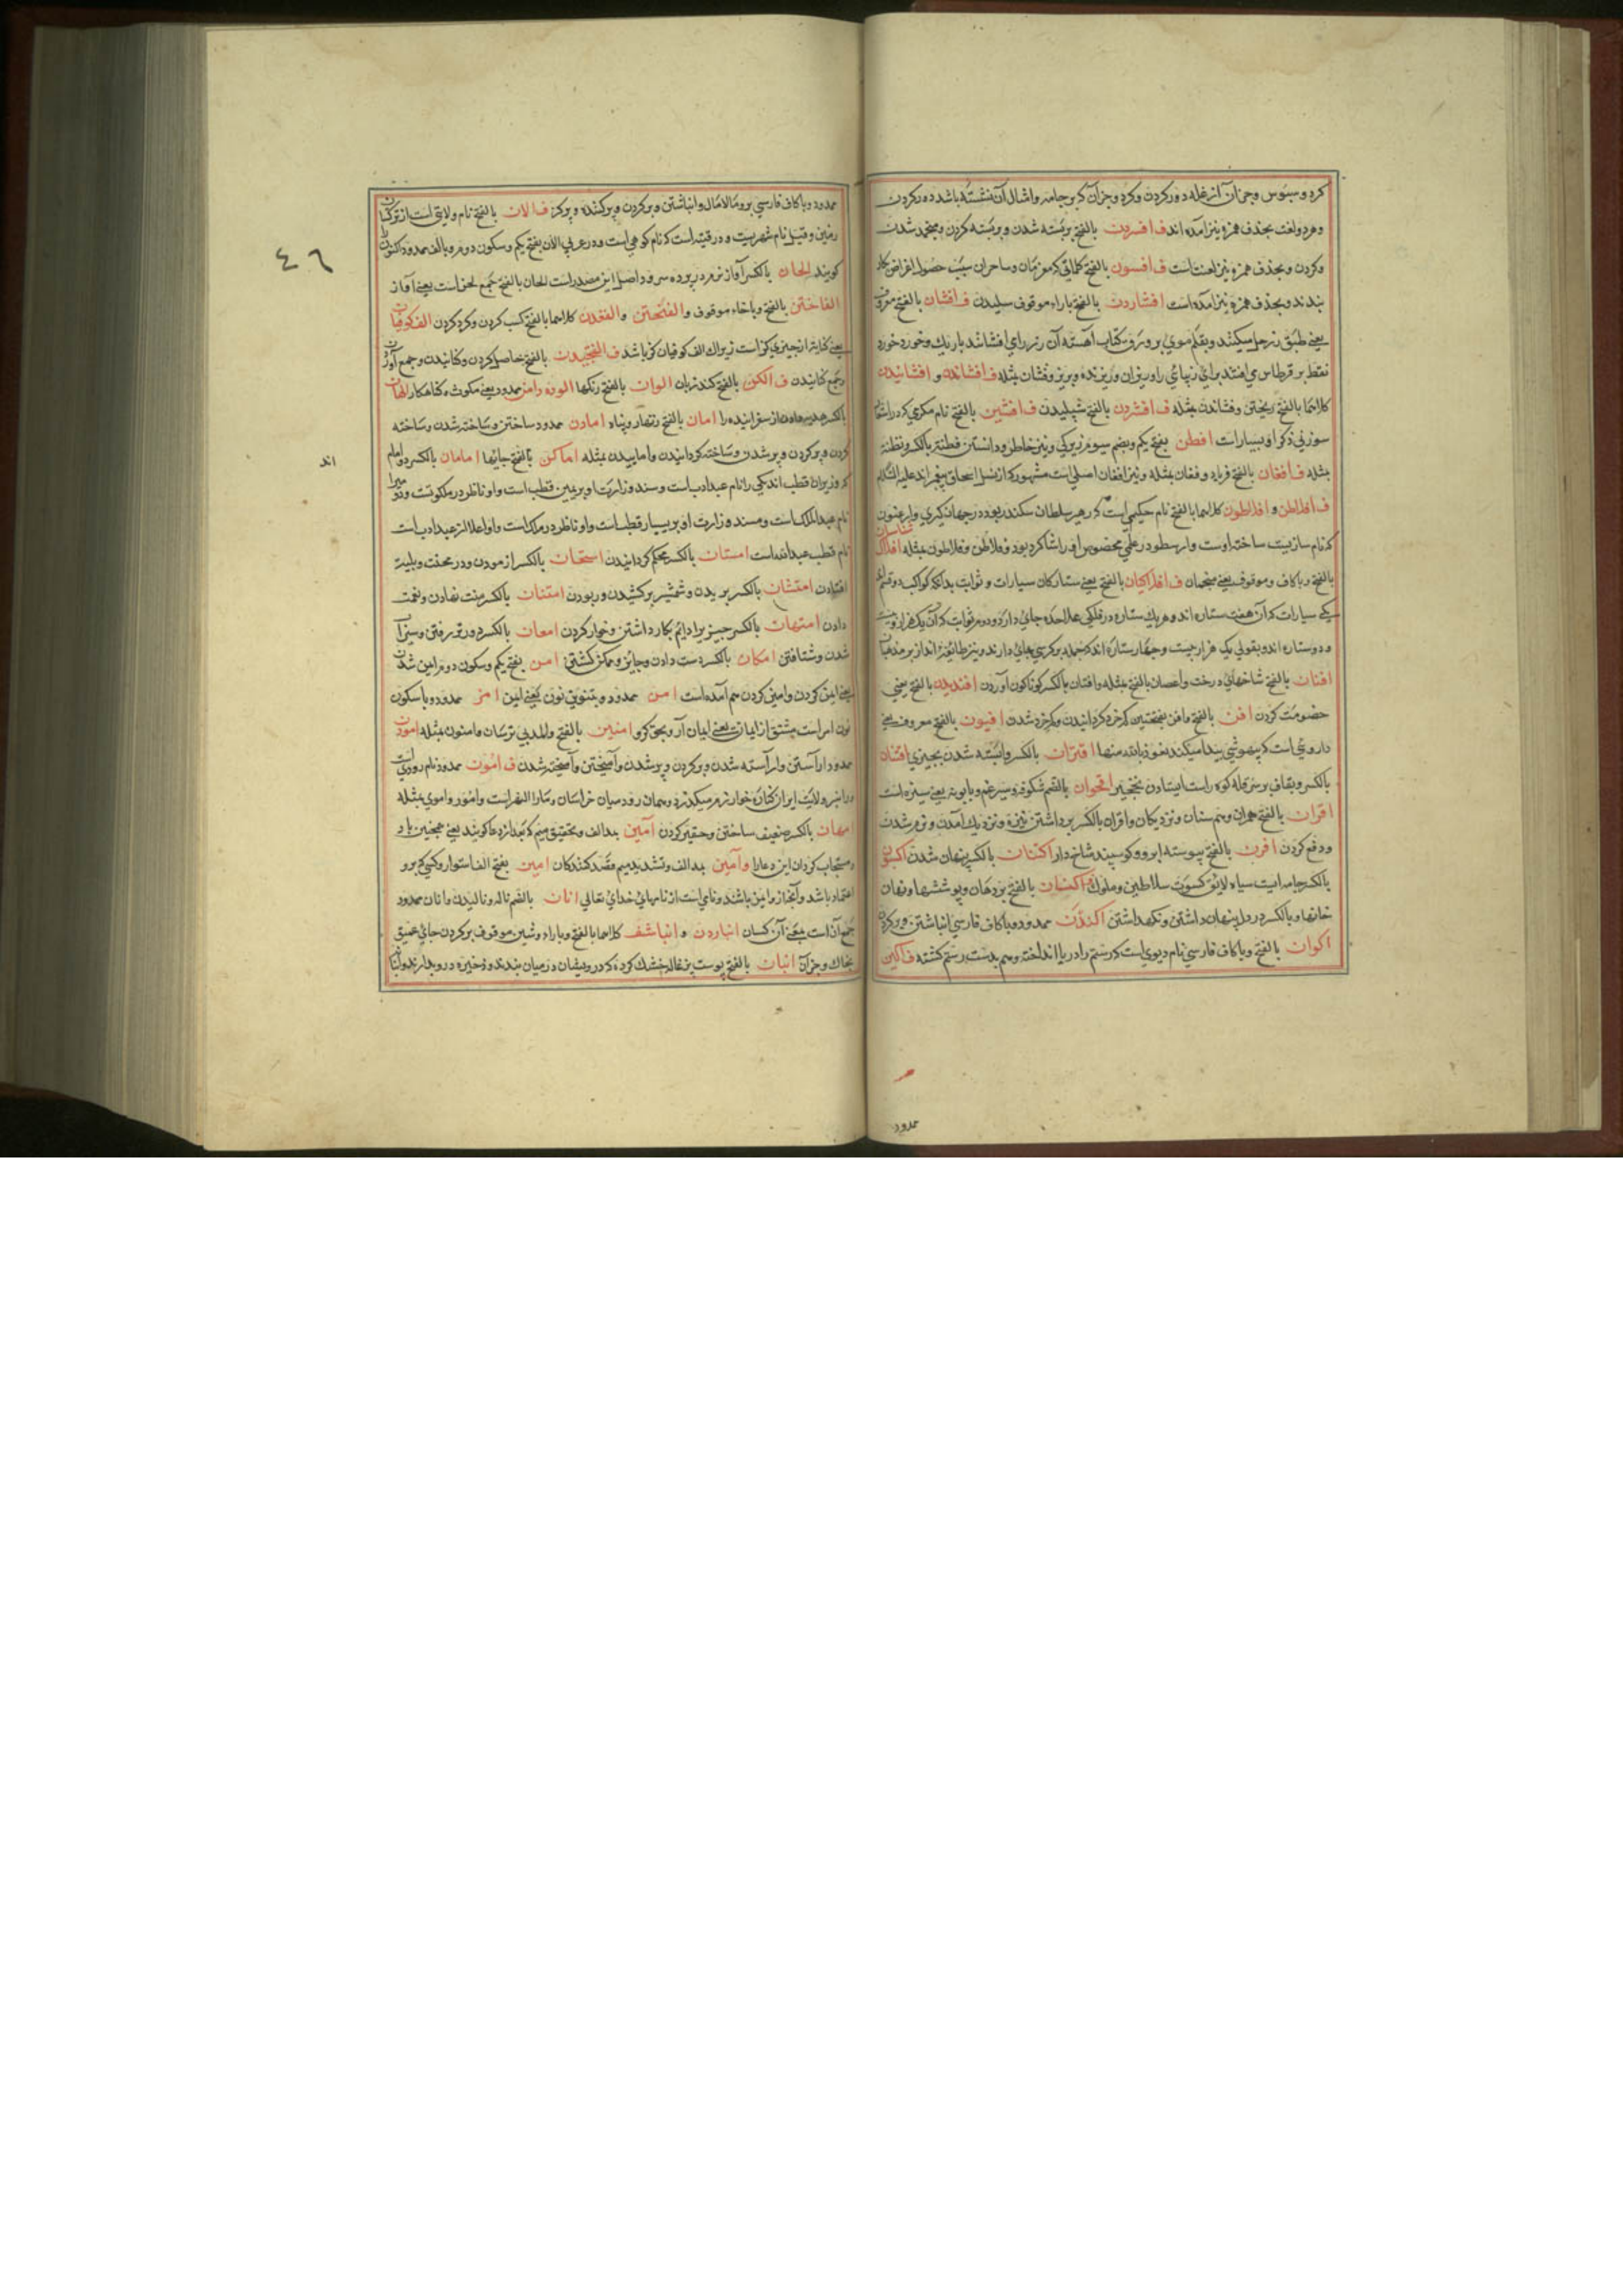 کرد و سبوس و جز آن از غله دور کردن و کرد و جز آن که بر جامه و امثال آن نشسته باشد دور کردن
و هر دو لغت بحذف همزه نیز آمده اند ف افسردن بالفتح بربسته شدن و بربسته کردن و منجمد شدن
و کردن و بحذف همزه نیز لغت است ف افسون بالفتح کلماتی که معزمان و ساحران سبب حصول اغراض بکار
بندند و بحذف همزه نیز آمده است افشاردن بالفتح باراء موقوف ف افشان بالفتح معروف
یعنی طبق زر حل میکنند و بقلم موی بر ورق کتاب آهسته آن زر را می افشانند باریک و خورد خورد
نقطه بر قرطاس می افتد برای زیبایی را و ریزان و ریزنده و بریز و فشان مثله ف افشاندن و افشانیدن
کلاهما بالفتح ریختن و فشاندن مثله ف افشردن بالفتح شپلیدن ف افشین بالفتح نام مکری که در اشعار
سوزنی ذکر او بسیارات افطن بفتح یکم وبضم سیوم زیرکی و تیز خاطر و دانستن فطنة بالکسر و نطنة
مثله ف افغان بالفتح فریاد و فغان مثله و نیز افغان اصلی است مشهور که از نسل اسحاق پیغمبر اند علیه السلام
ف افلاطن و افلاطون کلاهما بالفتح نام حکیمی است که رهبر سلطان سکندر بود در جهان کیری و ارغنون
که نام سازیست ساخته اوست و ارسطو در علمی مخصوص او را شاکرد بود و فلاطن و فلاطون مثله افلاک
شناسان
بالفتح و باکاف و موقوف یعنی منجمان ف افلاکیان بالفتح یعنی ستارکان سیارات و ثوابت بدانکه کواکب دو قسم اند
یکی سیارات که آن هفت ستاره اند و هر یک ستاره در فلکی علاحده جای دارد و دوم ثوابت که آن یک هزار و بیست
و دو ستاره اند و بقولی یک هزار و بیست و چهار ستاره اند که جمله بر کرسی جای دارند
افنان بالفتح شاخهای درخت و اغصان بالفتح مثله و افنان بالکسر کوناکون آوردن افندیدن بالفتح یعنی
خصومت کردن افن بالفتح و افن بفتحتین کم خرد کردانیدن و کم خرد شدن افیون بالفتح معروف یعنی
داروئی است که بیهوشی پیدا میکند نعوذ بالله منها اقتران بالکسر وابسته شدن بچیزی اقنان
بالکسر و بقاف بر سر قله کوه راست ایستادن نخجیر اقحوان بالضم شکوفه سپرغم و بابونه یعنی سبزه است
اقران بالفتح همران و هم سنان و نزدیکان و اقران بالکسر برداشتن نیزه و نزدیک آمدن و نرم شدن
و دفع کردن اقرن بالفتح پیوسته ابرو و کوسپند شاخ دار اکتنان بالکسر پنهان شدن اکسون
بالکسر جامه ایست سیاه لائق کسوت سلاطین و ملوک اکنان بالفتح پردهان و پوششها و نهان
خانها و بالکسر در دل پنهان داشتن و نکهداشتن اکندن ممدود و باکاف فارسی انباشتن و پر کردن
اکوان بالفتح و باکاف فارسی نام دیوی است که رستم را در دریا انداخته و هم بدست رستم کشته ف اکین
ممدود
ممدود و باکاف فارسی پر و مالامال و انباشتن و پر کردن و پر کننده و پر کن ف الان بالفتح نام ولایتی است از ترکستان
زمین و قیل نام شهریست و در قنیه است که نام کوهی است و در عربی الآن بفتح یکم و سکون دوم و بالف ممدود اکنون را
کویند الحان بالکسر آواز نرم در پرده سرود و اصل این مصدر است الحان بالفتح جمع لحن است یعنی آواز
الفاختن بالفتح و باخاء موقوف و الفنختن و الفغدن کلاهما بالفتح کسب کردن و کرد کردن الف کوفیان
یعنی کنایة از چیزی کژ است زیراک الف کوفیان کژ باشد ف الفنجیدن بالفتح حاصل کردن و کنانیدن و جمع آوردن
و جمع کنانیدن ف الکن بالفتح کند زبان الوان بالفتح رنکها
امان بالفتح زنهار و پناه امادن ممدود ساختن و ساخته شدن و ساخته
کردن و پر کردن و پر شدن و ساخته کردانیدن و اماییدن مثله اماکن بالفتح جایها امامان بالکسر دو امام
که وزیران قطب اند یکی را نام عبد الرب است و مسند وزارت او بر یمین قطب است و او ناظر در ملکوت است و دوم را
اند
نام عبد الملک است و مسند وزارت او بر یسار قطب است و او ناظر در ملک است و او اعلا از عبد الرب است
نام قطب عبد الله است امتنان بالکسر محکم کردانیدن امتحان بالکسر ازمودن و در محنت و بلیة
افتادن امتشان بالکسر بریدن و شمشیر برکشیدن و ربودن امتنان بالکسر منت نهادن و نعمت
دادن امتهان بالکسر چیزیرا دائم بکار داشتن و خوار کردن امعان بالکسر دورتر رفتن و سیراب
شدن و شتافتن امکان بالکسر دست دادن و جایز و ممکن کشتن امن بفتح یکم و سکون دوم ایمن شدن
یعنی ایمن کردن و امین کردن هم آمده است امن ممدود و بتنوین نون یعنی ایمن امن ممدود و با سکون
نون امر است مشتق از ایمان یعنی ایمان آر و بحق کرو امنین بالفتح
ممدود آراستن و آراسته شدن و پر کردن و پر شدن و آمیختن و آمیخته شدن ف امون ممدود نام رودی است
و در آخر ولایت ایران کناره خوارزم میکذرد و همان رود میان خراسان و ماوراء النهر است و امور و اموی مثله
امهان بالکسر ضعیف ساختن و حقیر کردن آمین بمد الف و تخفیف میم که بعد از دعا کویند یعنی همچنین باد
و مستجاب کردان این دعا را و آمین بمد الف و تشدید میم قصد کنندکان امین بفتح الف استوار و کسی که برو
اعتماد باشد و آنکه از و ایمن باشند و نامی است از نامهای خدای تعالی انان بالضم ناله و نالیدن و انان ممدود
جمع آن است یعنی آن کسان انباردن و انباشف کلاهما بالفتح و باراء و شین موقوف پر کردن جای عمیق
بخاک و جز آن انبان بالفتح پوست بزغاله خشک کرده که درویشان در میان بندند و ذخیره درو بدارند و انبا
٤٦